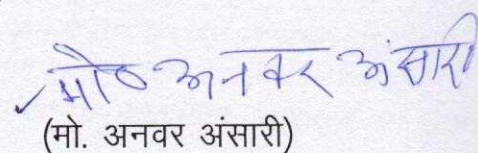 मो० अनवर अंसारी
(मो. अनवर अंसारी)